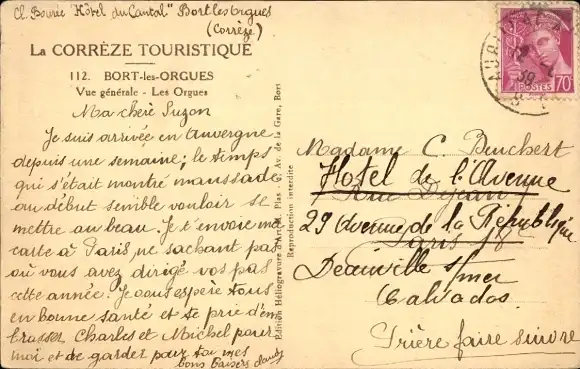 Cl. Bourée "Hôtel du Cantal" Bort les Orgues
(Corrèze)
La CORRÈZE TOURISTIQUE
112. BORT-les-ORGUES
Vue générale - Les Orgues
Ma chère Suzon
Je suis arrivée en Auvergne
depuis une semaine; le temps
qui s'était montré maussade
au début semble vouloir se
mettre au beau. Je t'envoie ma
carte à Paris ne sachant pas
où vous avez dirigé vos pas
cette année. Je vous espère tous
en bonne santé et te prie d'em
brasser Charles et Michel pour
moi et de garder pour toi mes
bons baisers
Edition Héliogravure d'Art M. Plas - Av. de la Gare, Bort
Reproduction interdite
POSTES
70c
39
Madame C. Beuchert
Hotel de l'Avenue
Rue
29 Avenue de la République
Paris
Deauville s/mer
Calvados.
Prière faire suivre